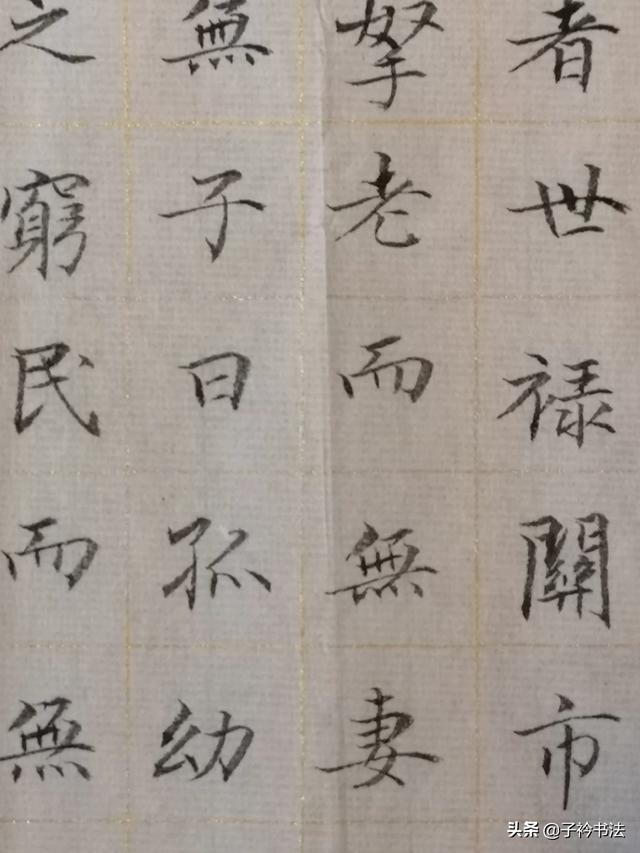 者世禄關市
孥老而無妻
無子曰孤幼
之窮民而無
头条 @子衿书法